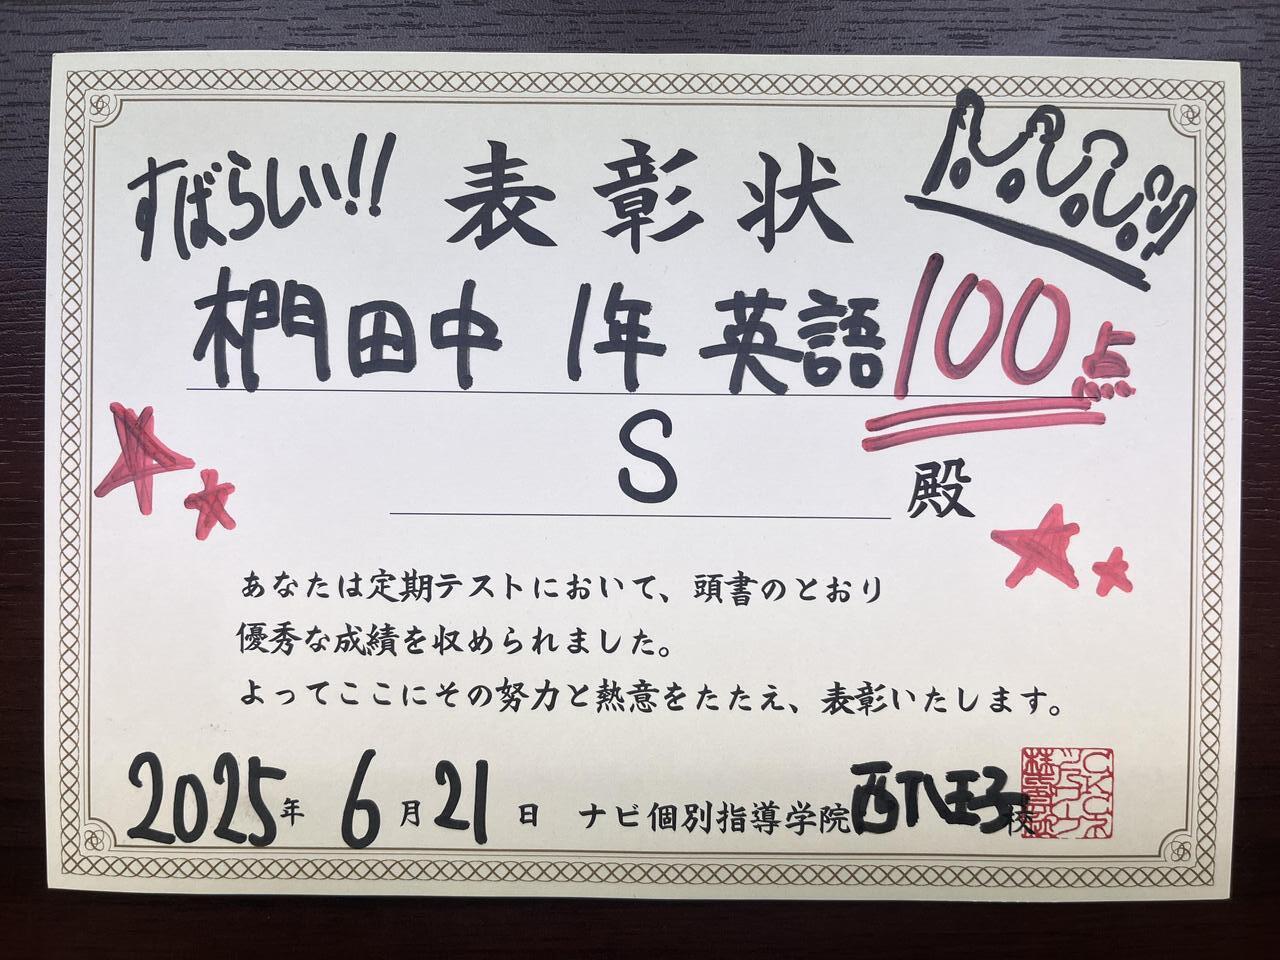 すばらしい!! 表彰状
椚田中 1年 英語 100点
S 殿
あなたは定期テストにおいて、頭書のとおり
優秀な成績を収められました。
よってここにその努力と熱意をたたえ、表彰いたします。
2025年 6月 21日 ナビ個別指導学院 西八王子校